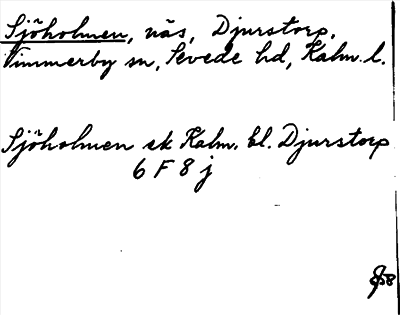 Sjöholmen, näs, Djurstorp,
Vimmerby sn, Sevede hd, Kalm. l.
Sjöholmen ek Kalm. bl. Djurstorp
6 F 8 j